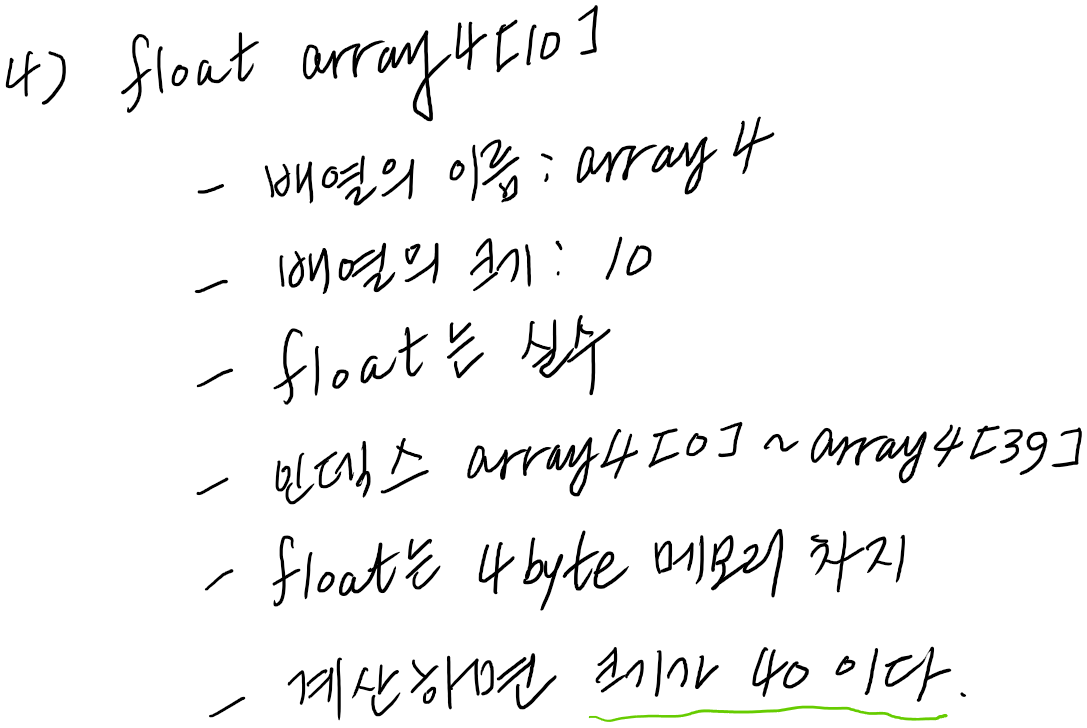 4) float array4[10]
- 배열의 이름 : array4
- 배열의 크기 : 10
- float는 실수
- 인덱스 array4[0] ~ array4[39]
- float는 4byte 메모리 차지
- 계산하면 크기가 40 이다.